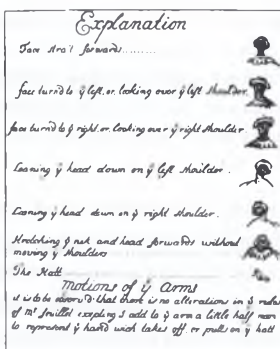 Explanation
Face strai't forwards.........
face turn'd to ẙ left. or. looking over ẙ left shoulder.
face turn'd to ẙ right. or. looking over ẙ right shoulder
Leaning ẙ head down on ẙ left shoulder.
Leaning ẙ head down on ẙ right shoulder.
Stretching ẙ neck and head forwards without
moving ẙ shoulders
The Hatt
motions of ẙ Arms
it is to be observ'd that there is no alterations in ẙ rules
of Mr feuillet excepting I add to ẙ arm a little half moon
to represent ẙ hand wich takes off or pulls on ẙ hatt